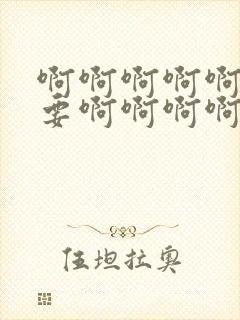 啊啊啊啊啊
要啊啊啊啊
伍坦拉奥